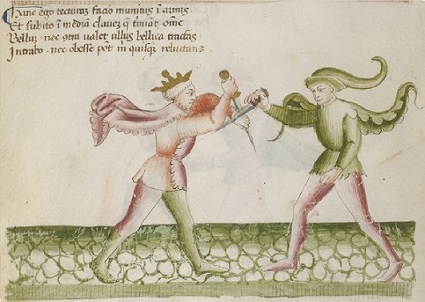 Hanc ego tecturaz facio munitus ĩ armis
Et subito ĩ mediã clavez q̃ tĩnat om̃e
Belluz . nec 9tra valet ullus bellica tractãs
Intrabo . nec obesse pot m̃ quisqz reluctans